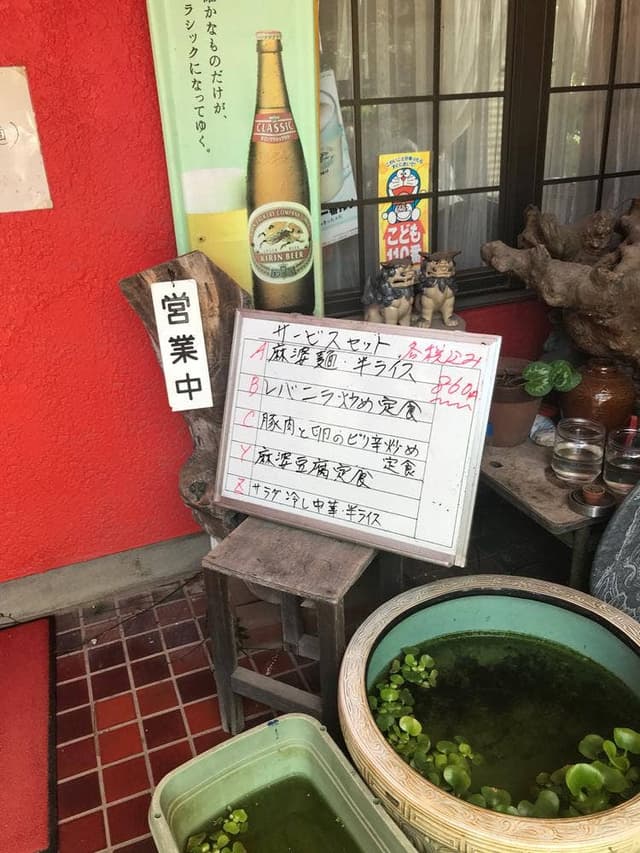 確かなものだけが、
クラシックになってゆく。
CLASSIC
KIRIN BEER
こども
110番
営業中
サービスセット
各税込み
860円
A 麻婆麺・半ライス
B レバニラ炒め定食
C 豚肉と卵のピリ辛炒め
定食
Y 麻婆豆腐定食
Z サラダ冷し中華・半ライス